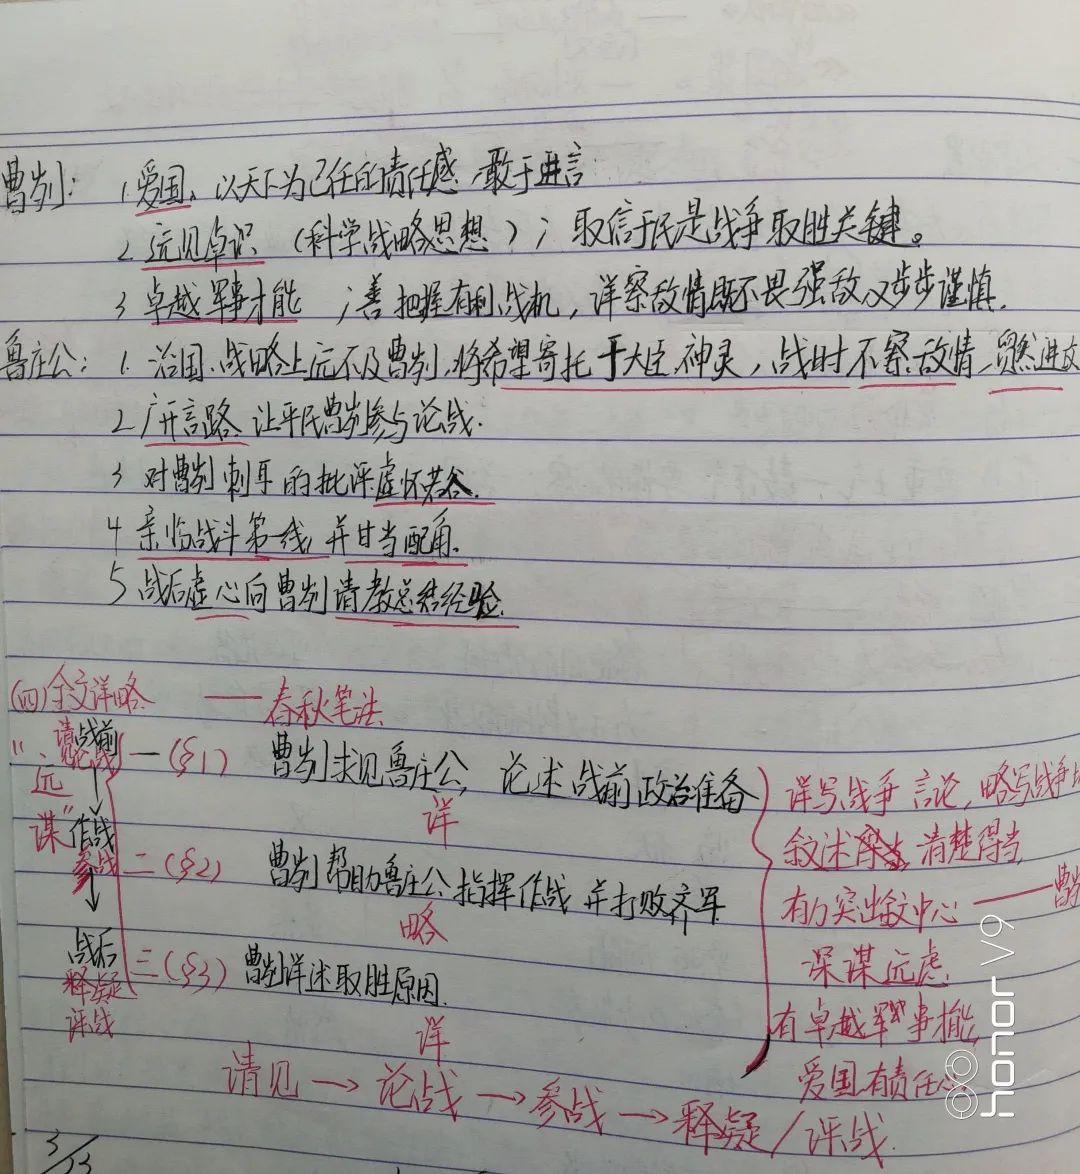 曹刿： 1. 爱国、以天下为己任的责任感，敢于进言
2. 远见卓识 （科学战略思想）；取信于民是战争取胜关键。
3 卓越军事才能 ；善把握有利战机，详察敌情既不畏强敌又步步谨慎.
鲁庄公： 1. 治国、战略上远不及曹刿，将希望寄托于大臣、神灵，战时不察敌情，贸然进攻
2 广开言路 让平民曹刿参与论战.
3 对曹刿刺耳的批评虚怀若谷.
4 亲临战斗第一线，并甘当配角.
5 战后虚心向曹刿请教总结经验.
(四)全文详略 —— 春秋笔法
战前
"远谋"
请见 论战 一(§1) 曹刿求见鲁庄公，论述战前政治准备
详
作战
参战 二(§2) 曹刿帮助鲁庄公指挥作战并打败齐军
略
战后
释疑 三(§3) 曹刿详述取胜原因.
评战
详
详写战争言论，略写战争
叙述 清楚得当
有力突出 中心 —— 曹
深谋远虑
有卓越军事才能
爱国有责任心
请见 → 论战 → 参战 → 释疑 / 评战.
3/13
honor V9